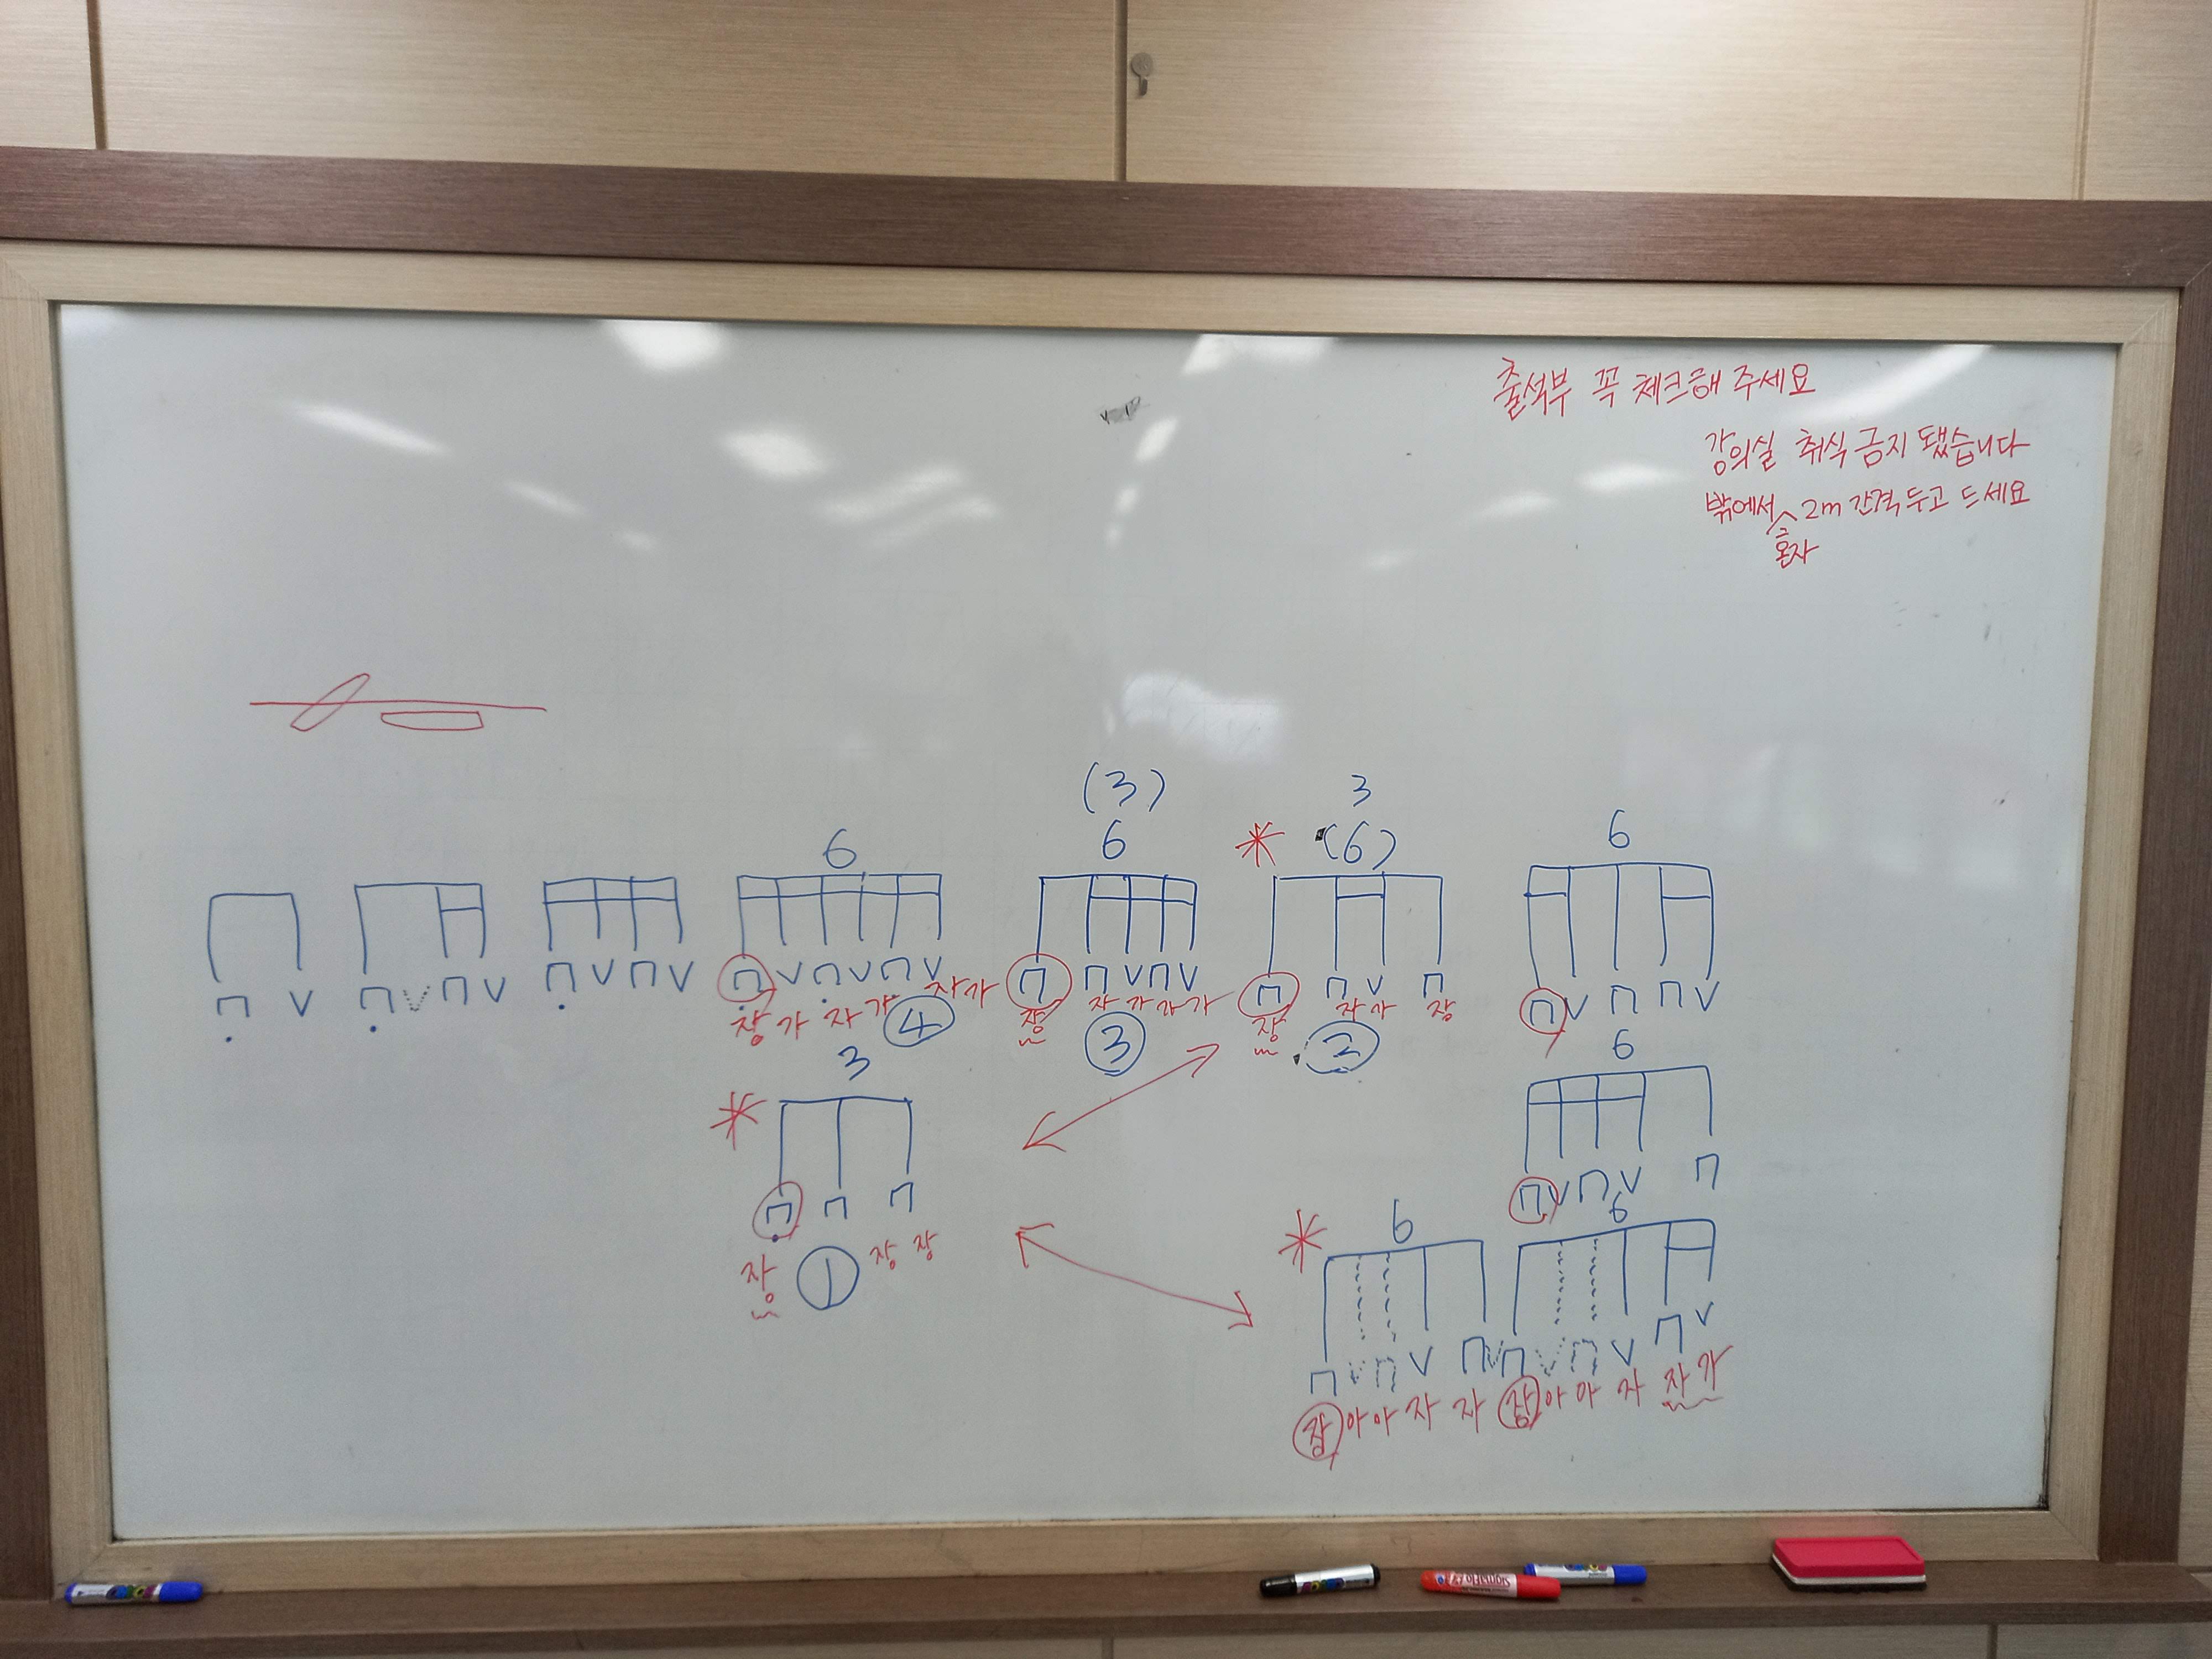 출석부 꼭 체크해 주세요
강의실 취식 금지 됐습니다
밖에서 혼자 2m 간격 두고 드세요
(3)
3
6
6
(6)
6
V
V V
V V
V V V
V V
V
V V
장 가 자 가 자 가
장 자 가 자 가
장 자 가 장
④
③
②
3
6
V V
장 ① 장 장
6
6
V
V
V
V
장 아 아 자 자 장 아 아 자 자 가